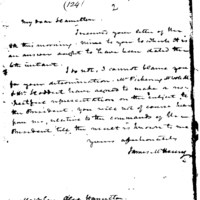 (124)
2
My dear Hamilton
I received your letter of the
this morning mine to you to which it is
an answer ought to have been dated the
6th instant.
I do not, I cannot blame you
for your determination. Mr Pickering Mr Wolcott
& Mr Stoddert have agreed to make a
representation on the subject to
the President. You will not of course
me, relative to the commands of the
President till the result is known to me
Yours affectionately
James McHenry
Alex Hamilton